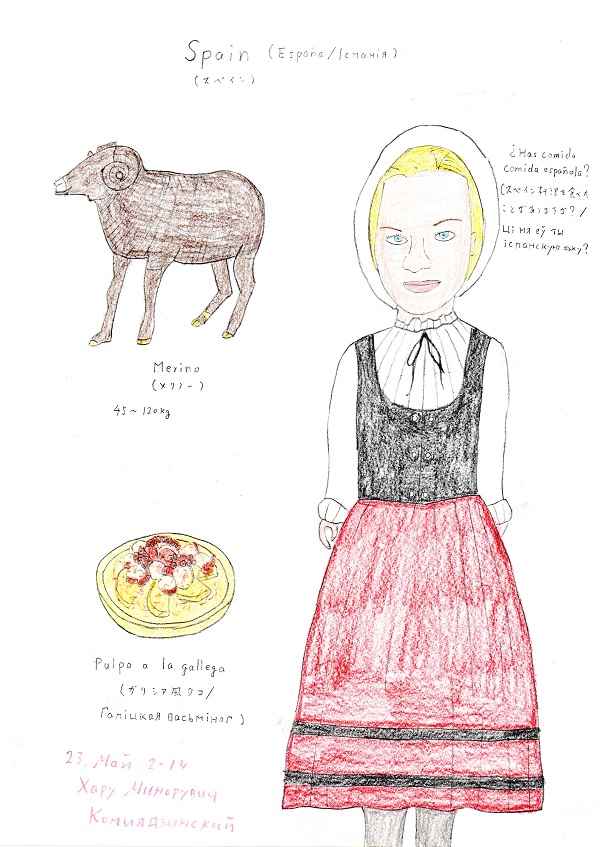 Spain (España/Іспанія)
(スペイン)
¿Has comido
comida española?
(スペイン料理を食べた
ことがありますか?/
Ці ня еў ты
іспанскую ежу?
Merino
(メリノー)
45~120kg
Pulpo a la gallega
(ガリシア風タコ/
Галіцкая васьміног)
23. Май. 2014
Хару Минорувич
Комиядзинский